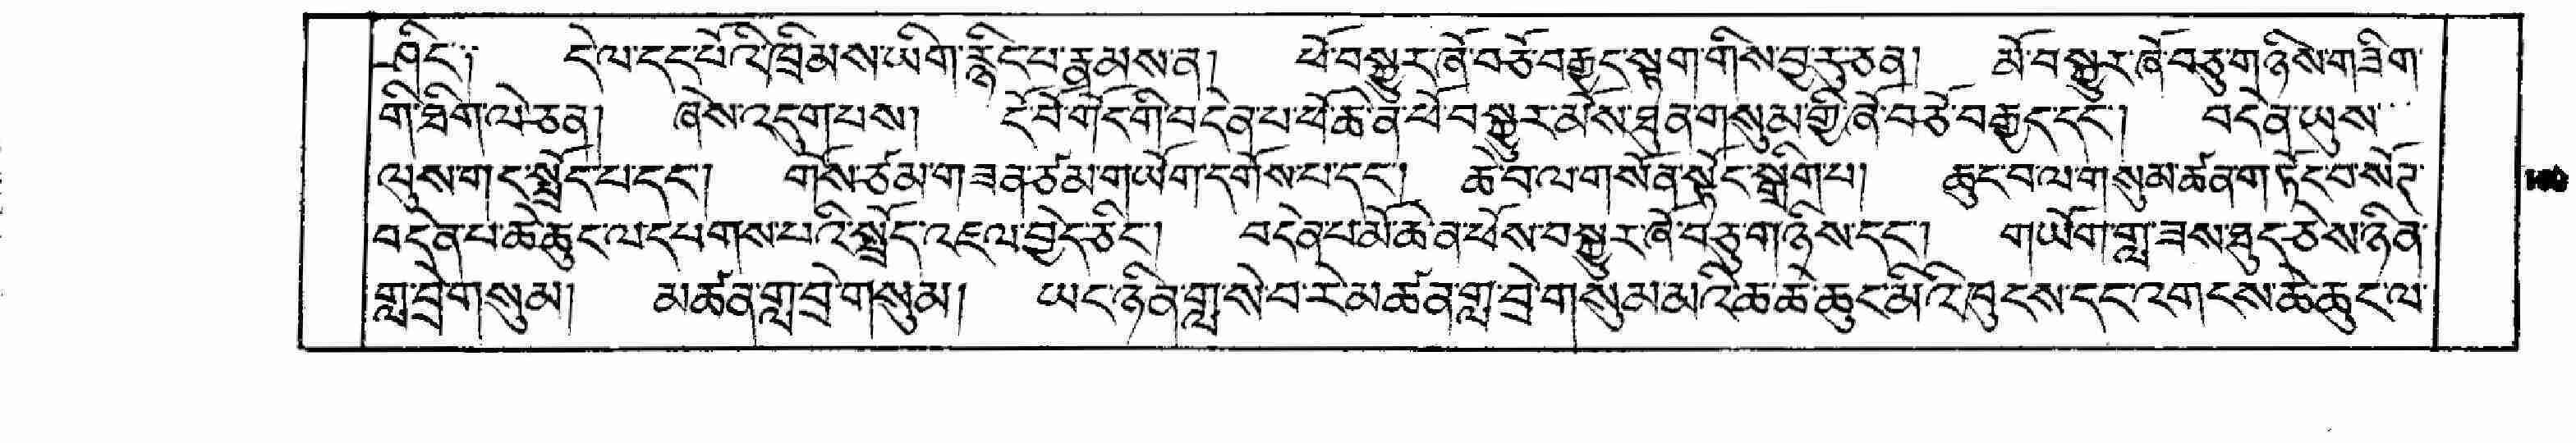 ཤིང་། དེ་ལ་དང་པོའི་ཁྲིམས་ཡིག་རྙིང་པ་རྣམས་ན། ཕོ་བསྐྱུར་ན་ོབཅོ་བརྒྱད་སྟག་གིས་བྱ་རུ་ཅན། མོ་བསྐྱུར་ཞོ་བཅུ་གཉིས་གཟིག་
གི་ཐིག་ལེ་ཅན། ཞེས་འདུག་པས། དོ་བོ་གོད་གི་བདེན་པ་ཕོ་ཆེ་ན་ཕོ་བསྐྱུར་མོས་ཐུན་གསུམ་གྱི་ཞོ་བཅོ་བརྒྱད་དང་། བདེན་ཡུས་
ལུས་གང་སྤྲོད་པ་དང་། གོས་ཙམ་གཟན་ཙམ་གཡོག་དགོས་པ་དང་། ཆེ་བ་ལ་གསོན་སྟོང་སྒྲིག་པ། ཆུང་བ་ལ་གསུམ་ཚན་གཏོང་བ་སོཊ་
བདེན་པ་ཆེ་ཆུང་ལ་དཔགས་པའི་སྤྲོད་འཇལ་བྱེད་ཅིང་། བདེན་པ་མོ་ཆེ་ན་ཕོས་བསྐྱུར་ཞོ་བཅུ་གཉིས་དང་། གཡོག་གླ་ཟས་ཐུད་ཅེས་ཉིན་
གླ་བྲེ་གསུམ། མཚན་གླ་བྲེ་གསུམ། ཡང་ཉིན་གླ་སེ་བ་རེ་མཚན་གླ་བྲེ་གསུམ་མའི་ཆ་ཆེ་ཆུང་མིའི་ཁུངས་དང་འགངས་ཆེ་ཆུང་ལ་